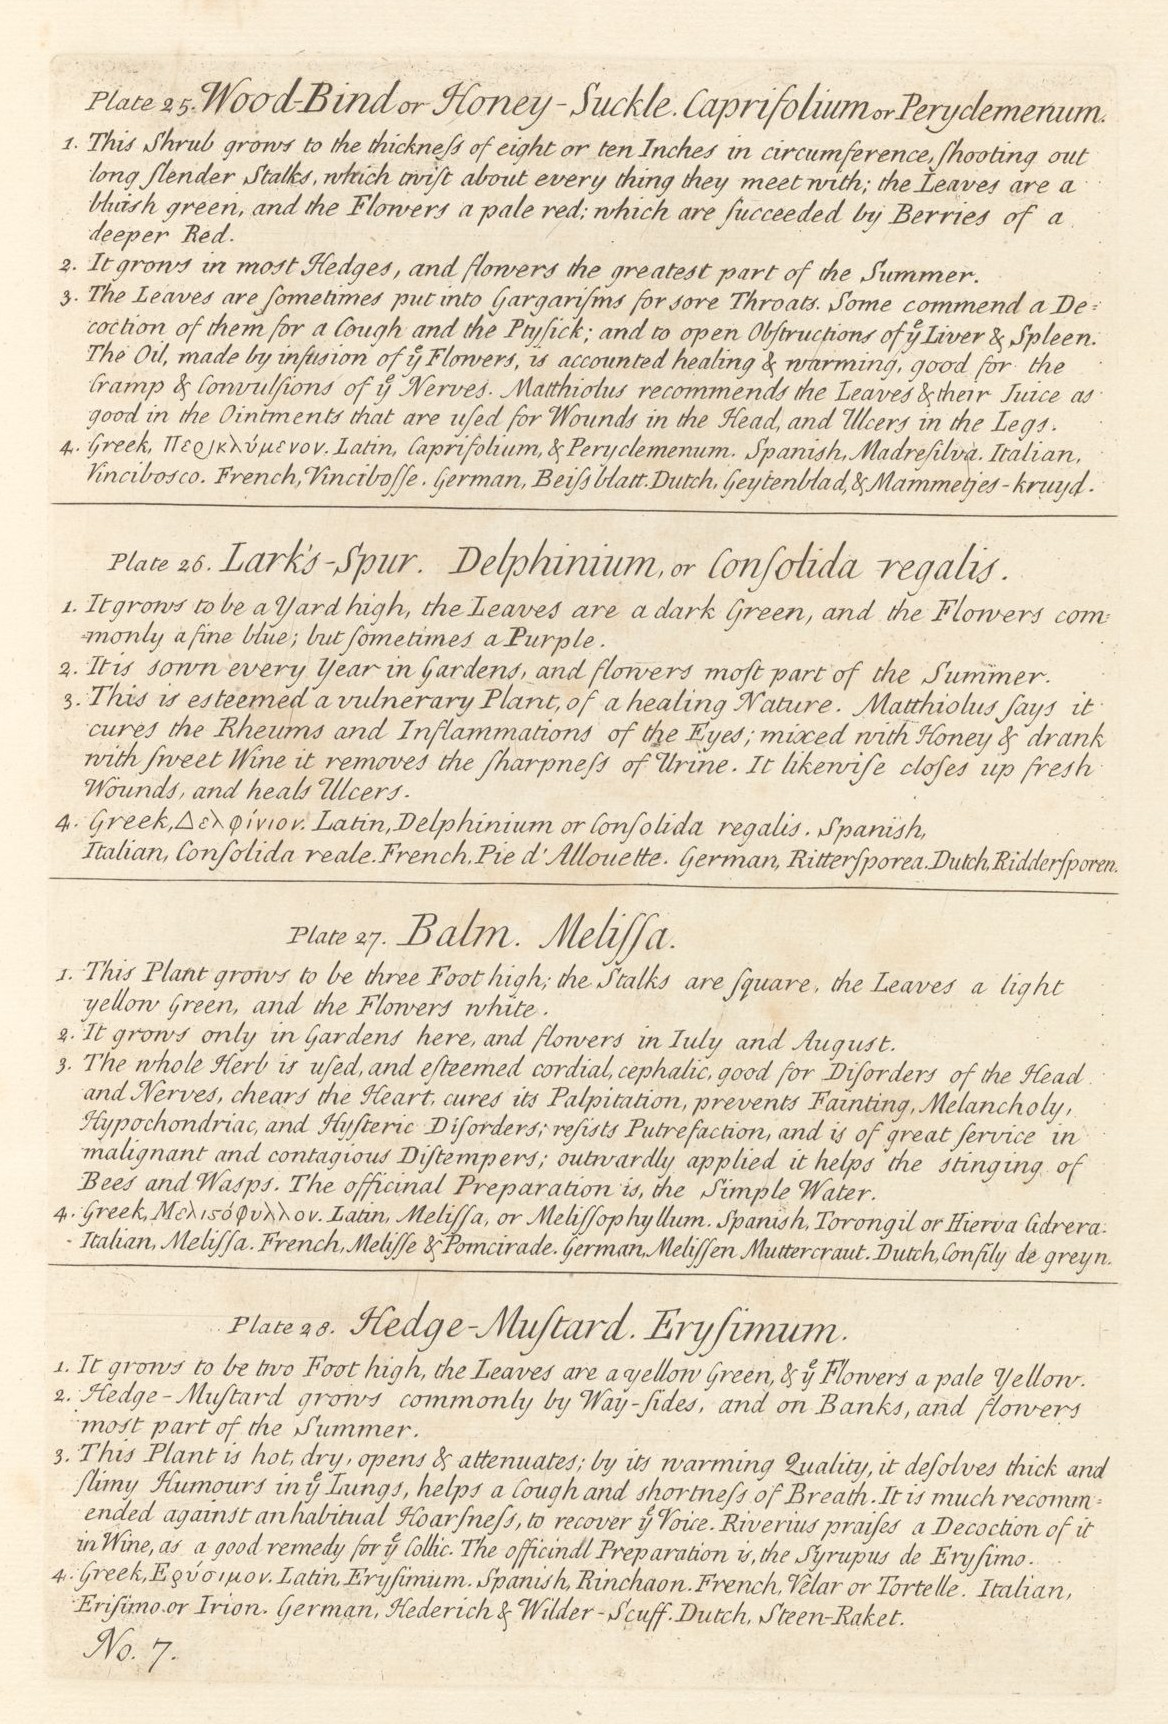 Plate 25. Wood-Bind or Honey-Suckle. Caprifolium or Peryclemenum.
1. This Shrub grows to the thickneſs of eight or ten Inches in circumference, ſhooting out
long ſlender Stalks, which twiſt about every thing they meet with; the Leaves are a
bluish green, and the Flowers a pale red; which are ſucceeded by Berries of a
deeper Red.
2. It grows in most Hedges, and flowers the greatest part of the Summer.
3. The Leaves are ſometimes put into Gargariſms for sore Throats. Some commend a De=
coction of them for a Cough and the Ptyſick; and to open Obſtructions of yͤ Liver & Spleen.
The Oil, made by infusion of yͤ Flowers, is accounted healing & warming, good for the
Cramp & Convulſions of yͤ Nerves. Matthiolus recommends the Leaves & their Juice as
good in the Ointments that are uſed for Wounds in the Head, and Ulcers in the Legs.
4. Greek, Περικλύμενον. Latin, Caprifolium, & Peryclemenum. Spanish, Madreſilva. Italian,
Vincibosco. French, Vinciboſſe. German, Beiſsblatt. Dutch, Geytenblad, & Mammetjes-kruyd.
Plate 26. Lark's-Spur. Delphinium, or Conſolida regalis.
1. It grows to be a Yard high, the Leaves are a dark Green, and the Flowers com=
=monly a fine blue; but ſometimes a Purple.
2. It is sown every Year in Gardens, and flowers moſt part of the Sum̅er.
3. This is esteemed a vulnerary Plant, of a healing Nature. Matthiolus ſays it
cures the Rheums and Inflammations of the Eyes; mixed with Honey & drank
with ſweet Wine it removes the ſharpneſs of Urine. It likewiſe cloſes up freſh
Wounds, and heals Ulcers.
4. Greek, Δελφίνιον. Latin, Delphinium or Conſolida regalis. Spanish,
Italian, Conſolida reale. French, Pie d'Allouette. German, Ritterſporea. Dutch, Ridderſporen.
Plate 27. Balm. Meliſſa.
1. This Plant grows to be three Foot high; the Stalks are ſquare, the Leaves a light
yellow Green, and the Flowers white.
2. It grows only in Gardens here, and flowers in Iuly and August.
3. The whole Herb is uſed, and eſteemed cordial, cephalic, good for Diſorders of the Head
and Nerves, chears the Heart, cures its Palpitation, prevents Fainting, Melancholy,
Hypochondriac, and Hyſteric Diſorders; reſists Putrefaction, and is of great ſervice in
malignant and contagious Diſtempers; outwardly applied it helps the stinging of
Bees and Wasps. The officinal Preparation is, the Simple Water.
4. Greek, Μελισόφυλλον. Latin, Meliſſa, or Meliſſophyllum. Spanish, Torongil or Hierva Cidrera.
Italian, Meliſſa. French, Meliſſe & Pomcirade. German, Meliſſen Muttercraut. Dutch, Conſily de greyn.
Plate 28. Hedge-Muſtard. Eryſimum.
1. It grows to be two Foot high, the Leaves are a yellow Green, & yͤ Flowers a pale Yellow.
2. Hedge-Muſtard grows commonly by Way-ſides, and on Banks, and flowers
most part of the Summer.
3. This Plant is hot, dry, opens & attenuates; by its warming Quality, it deſolves thick and
ſlimy Humours in yͤ Lungs, helps a Cough and shortneſs of Breath. It is much recomm=
ended against an habitual Hoarſneſs, to recover yͤ Voice. Riverius praiſes a Decoction of it
in Wine, as a good remedy for yͤ Collic. The officinal Preparation is, the Syrupus de Eryſimo.
4. Greek, Ερύσιμον. Latin, Eryſimum. Spanish, Rinchaon. French, Vêlar or Tortelle. Italian,
Eriſimo or Irion. German, Hederich & Wilder-Scuff. Dutch, Steen-Raket.
No. 7.